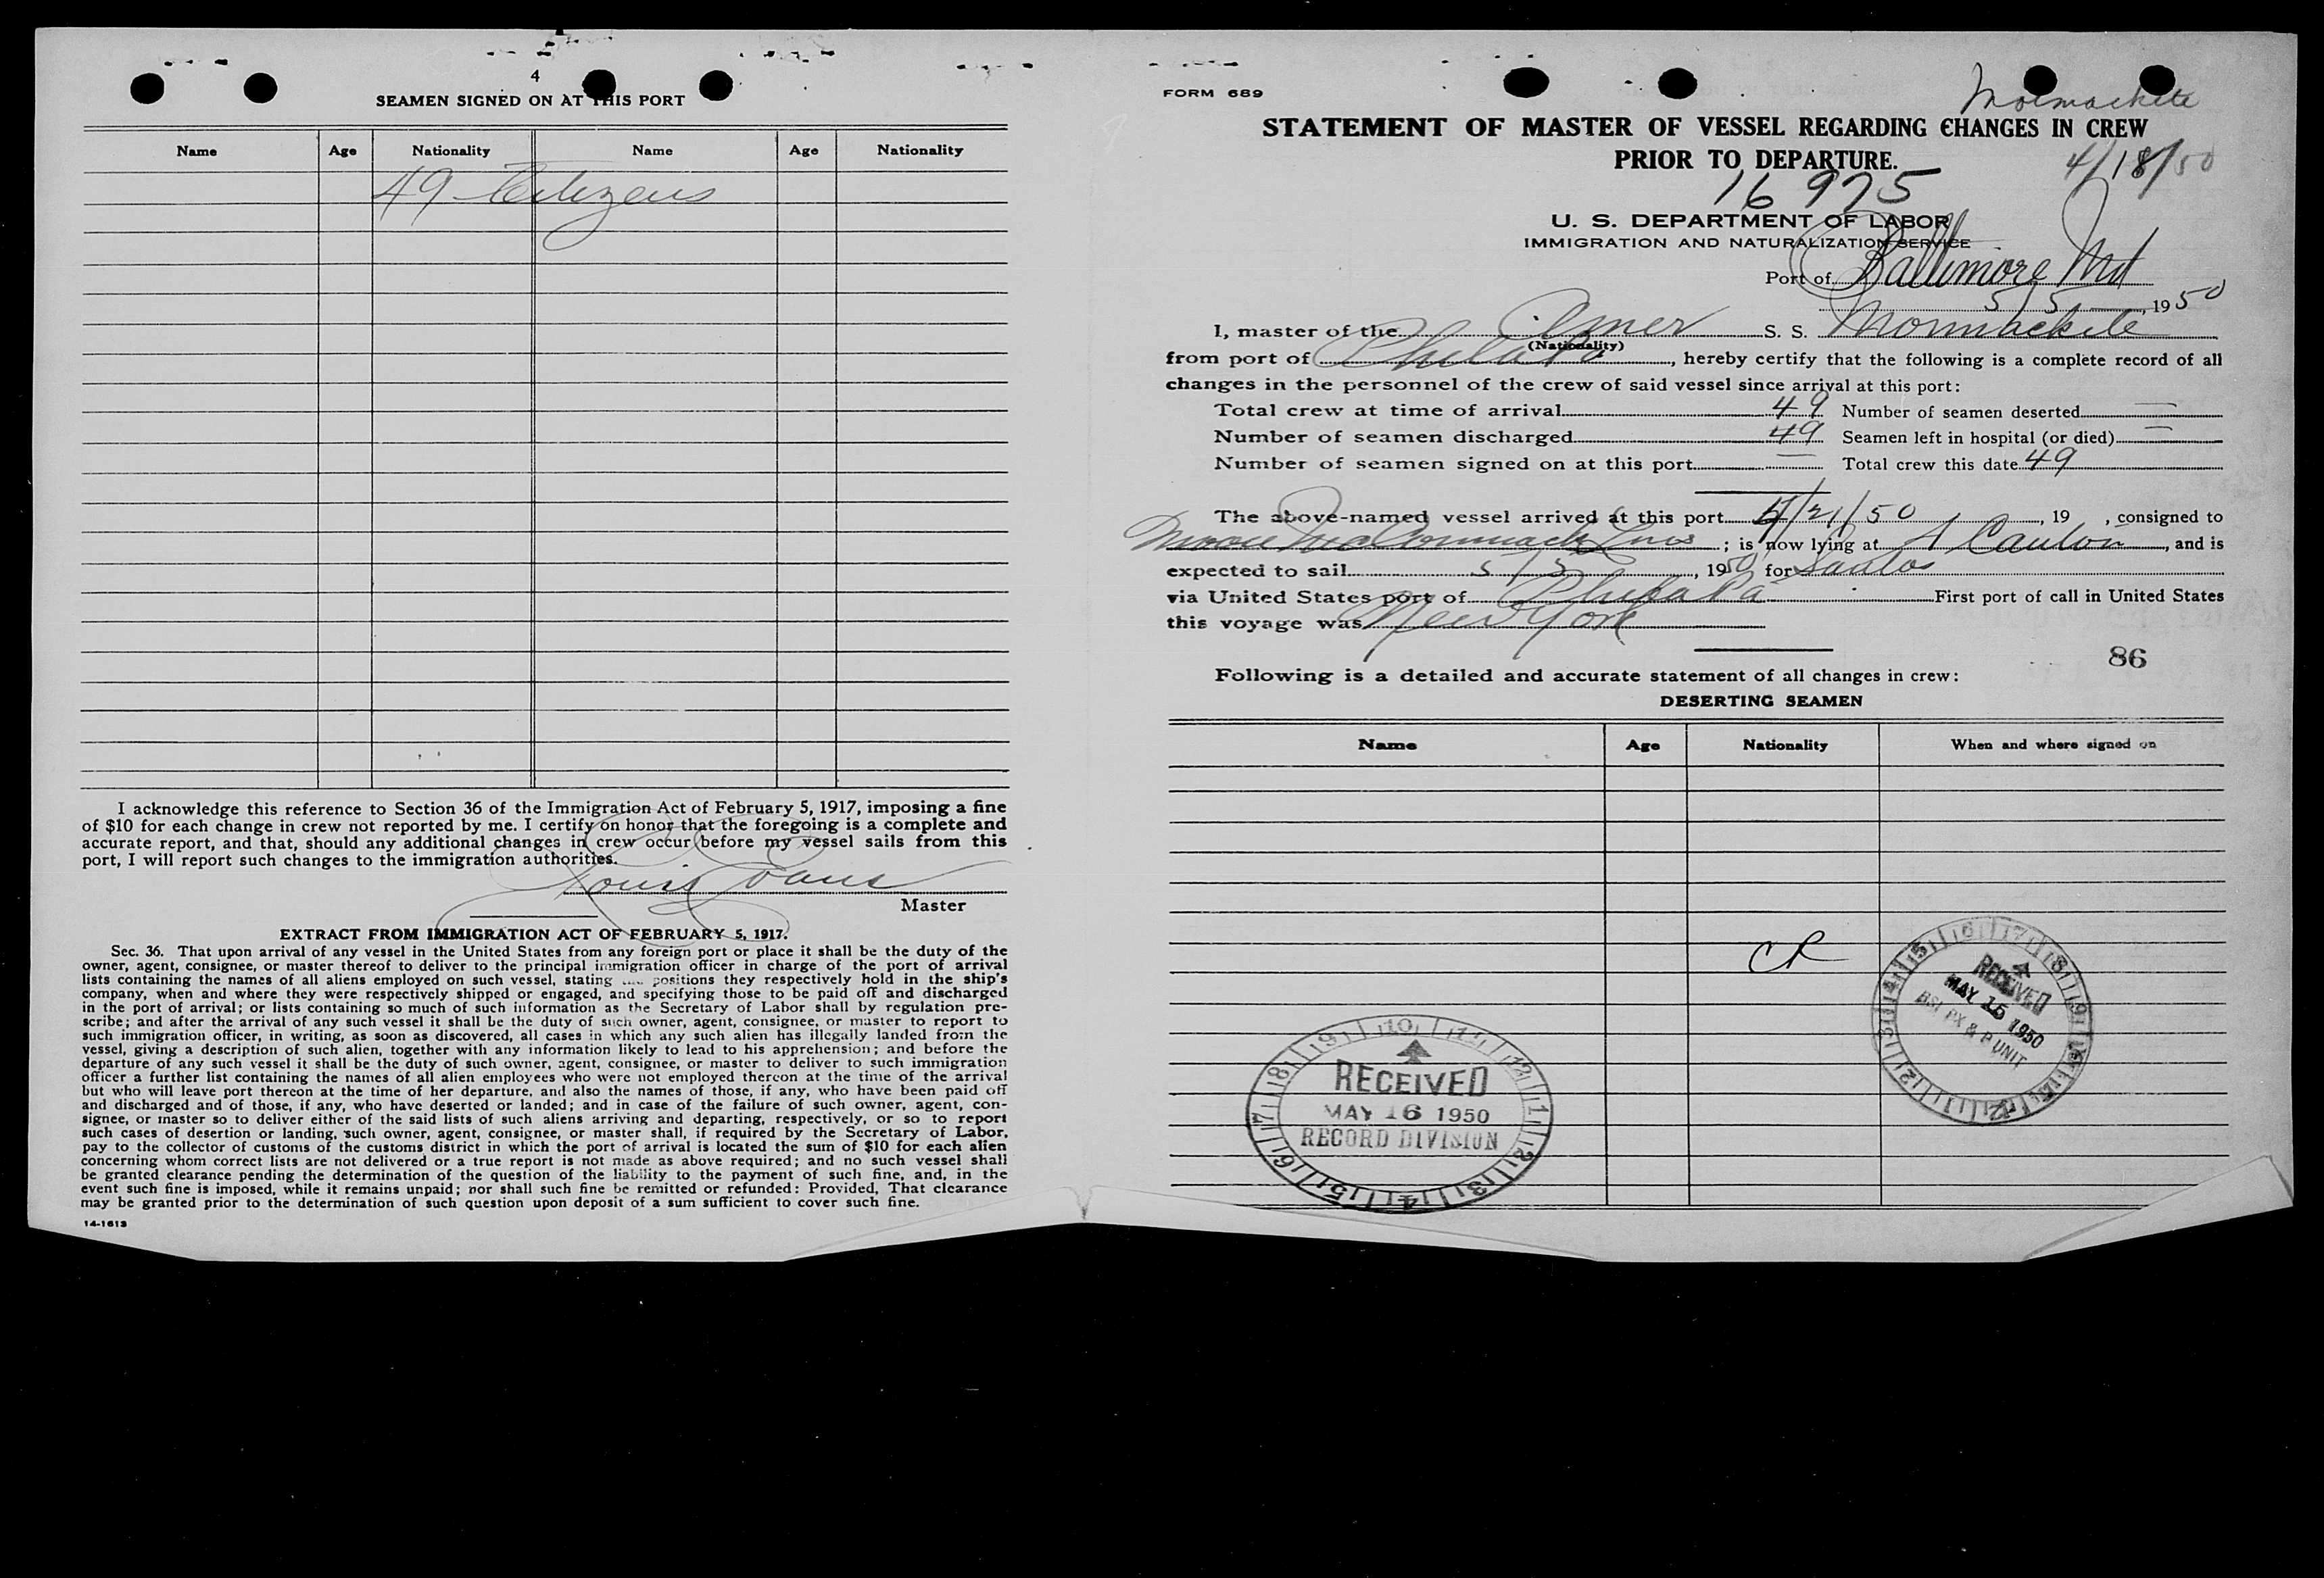 4
SEAMEN SIGNED ON AT THIS PORT
Name Age Nationality Name Age Nationality
49 Citizens
I acknowledge this reference to Section 36 of the Immigration Act of February 5, 1917, imposing a fine
of $10 for each change in crew not reported by me. I certify on honor that the foregoing is a complete and
accurate report, and that, should any additional changes in crew occur before my vessel sails from this
port, I will report such changes to the immigration authorities.
Louis Evans
Master
EXTRACT FROM IMMIGRATION ACT OF FEBRUARY 5, 1917.
Sec. 36. That upon arrival of any vessel in the United States from any foreign port or place it shall be the duty of the
owner, agent, consignee, or master thereof to deliver to the principal immigration officer in charge of the port of arrival
lists containing the names of all aliens employed on such vessel, stating the positions they respectively hold in the ship's
company, when and where they were respectively shipped or engaged, and specifying those to be paid off and discharged
in the port of arrival; or lists containing so much of such information as the Secretary of Labor shall by regulation pre-
scribe; and after the arrival of any such vessel it shall be the duty of such owner, agent, consignee, or master to report to
such immigration officer, in writing, as soon as discovered, all cases in which any such alien has illegally landed from the
vessel, giving a description of such alien, together with any information likely to lead to his apprehension; and before the
departure of any such vessel it shall be the duty of such owner, agent, consignee, or master to deliver to such immigration
officer a further list containing the names of all alien employees who were not employed thereon at the time of the arrival
but who will leave port thereon at the time of her departure, and also the names of those, if any, who have been paid off
and discharged and of those, if any, who have deserted or landed; and in case of the failure of such owner, agent, con-
signee, or master so to deliver either of the said lists of such aliens arriving and departing, respectively, or so to report
such cases of desertion or landing, such owner, agent, consignee, or master shall, if required by the Secretary of Labor,
pay to the collector of customs of the customs district in which the port of arrival is located the sum of $10 for each alien
concerning whom correct lists are not delivered or a true report is not made as above required; and no such vessel shall
be granted clearance pending the determination of the question of the liability to the payment of such fine, and, in the
event such fine is imposed, while it remains unpaid; nor shall such fine be remitted or refunded: Provided, That clearance
may be granted prior to the determination of such question upon deposit of a sum sufficient to cover such fine.
14-1613
FORM 689
Mormackite
STATEMENT OF MASTER OF VESSEL REGARDING CHANGES IN CREW
PRIOR TO DEPARTURE.
4/18/50
16975
U. S. DEPARTMENT OF LABOR
IMMIGRATION AND NATURALIZATION SERVICE
Port of Baltimore Md
5/5, 1950
I, master of the Amer S. S. Mormackite
(Nationality)
from port of Phila Pa, hereby certify that the following is a complete record of all
changes in the personnel of the crew of said vessel since arrival at this port:
Total crew at time of arrival 49 Number of seamen deserted —
Number of seamen discharged 49 Seamen left in hospital (or died) —
Number of seamen signed on at this port — Total crew this date 49
The above-named vessel arrived at this port 4/21/50, 19 , consigned to
Moore McCormack Lines; is now lying at Canton, and is
expected to sail 5/5, 1950 for Santos
via United States port of Phila Pa First port of call in United States
this voyage was New York
86
Following is a detailed and accurate statement of all changes in crew:
DESERTING SEAMEN
Name Age Nationality When and where signed on
CR
RECEIVED
MAY 15 1950
BSI PX & P UNIT
RECEIVED
MAY 16 1950
RECORD DIVISION